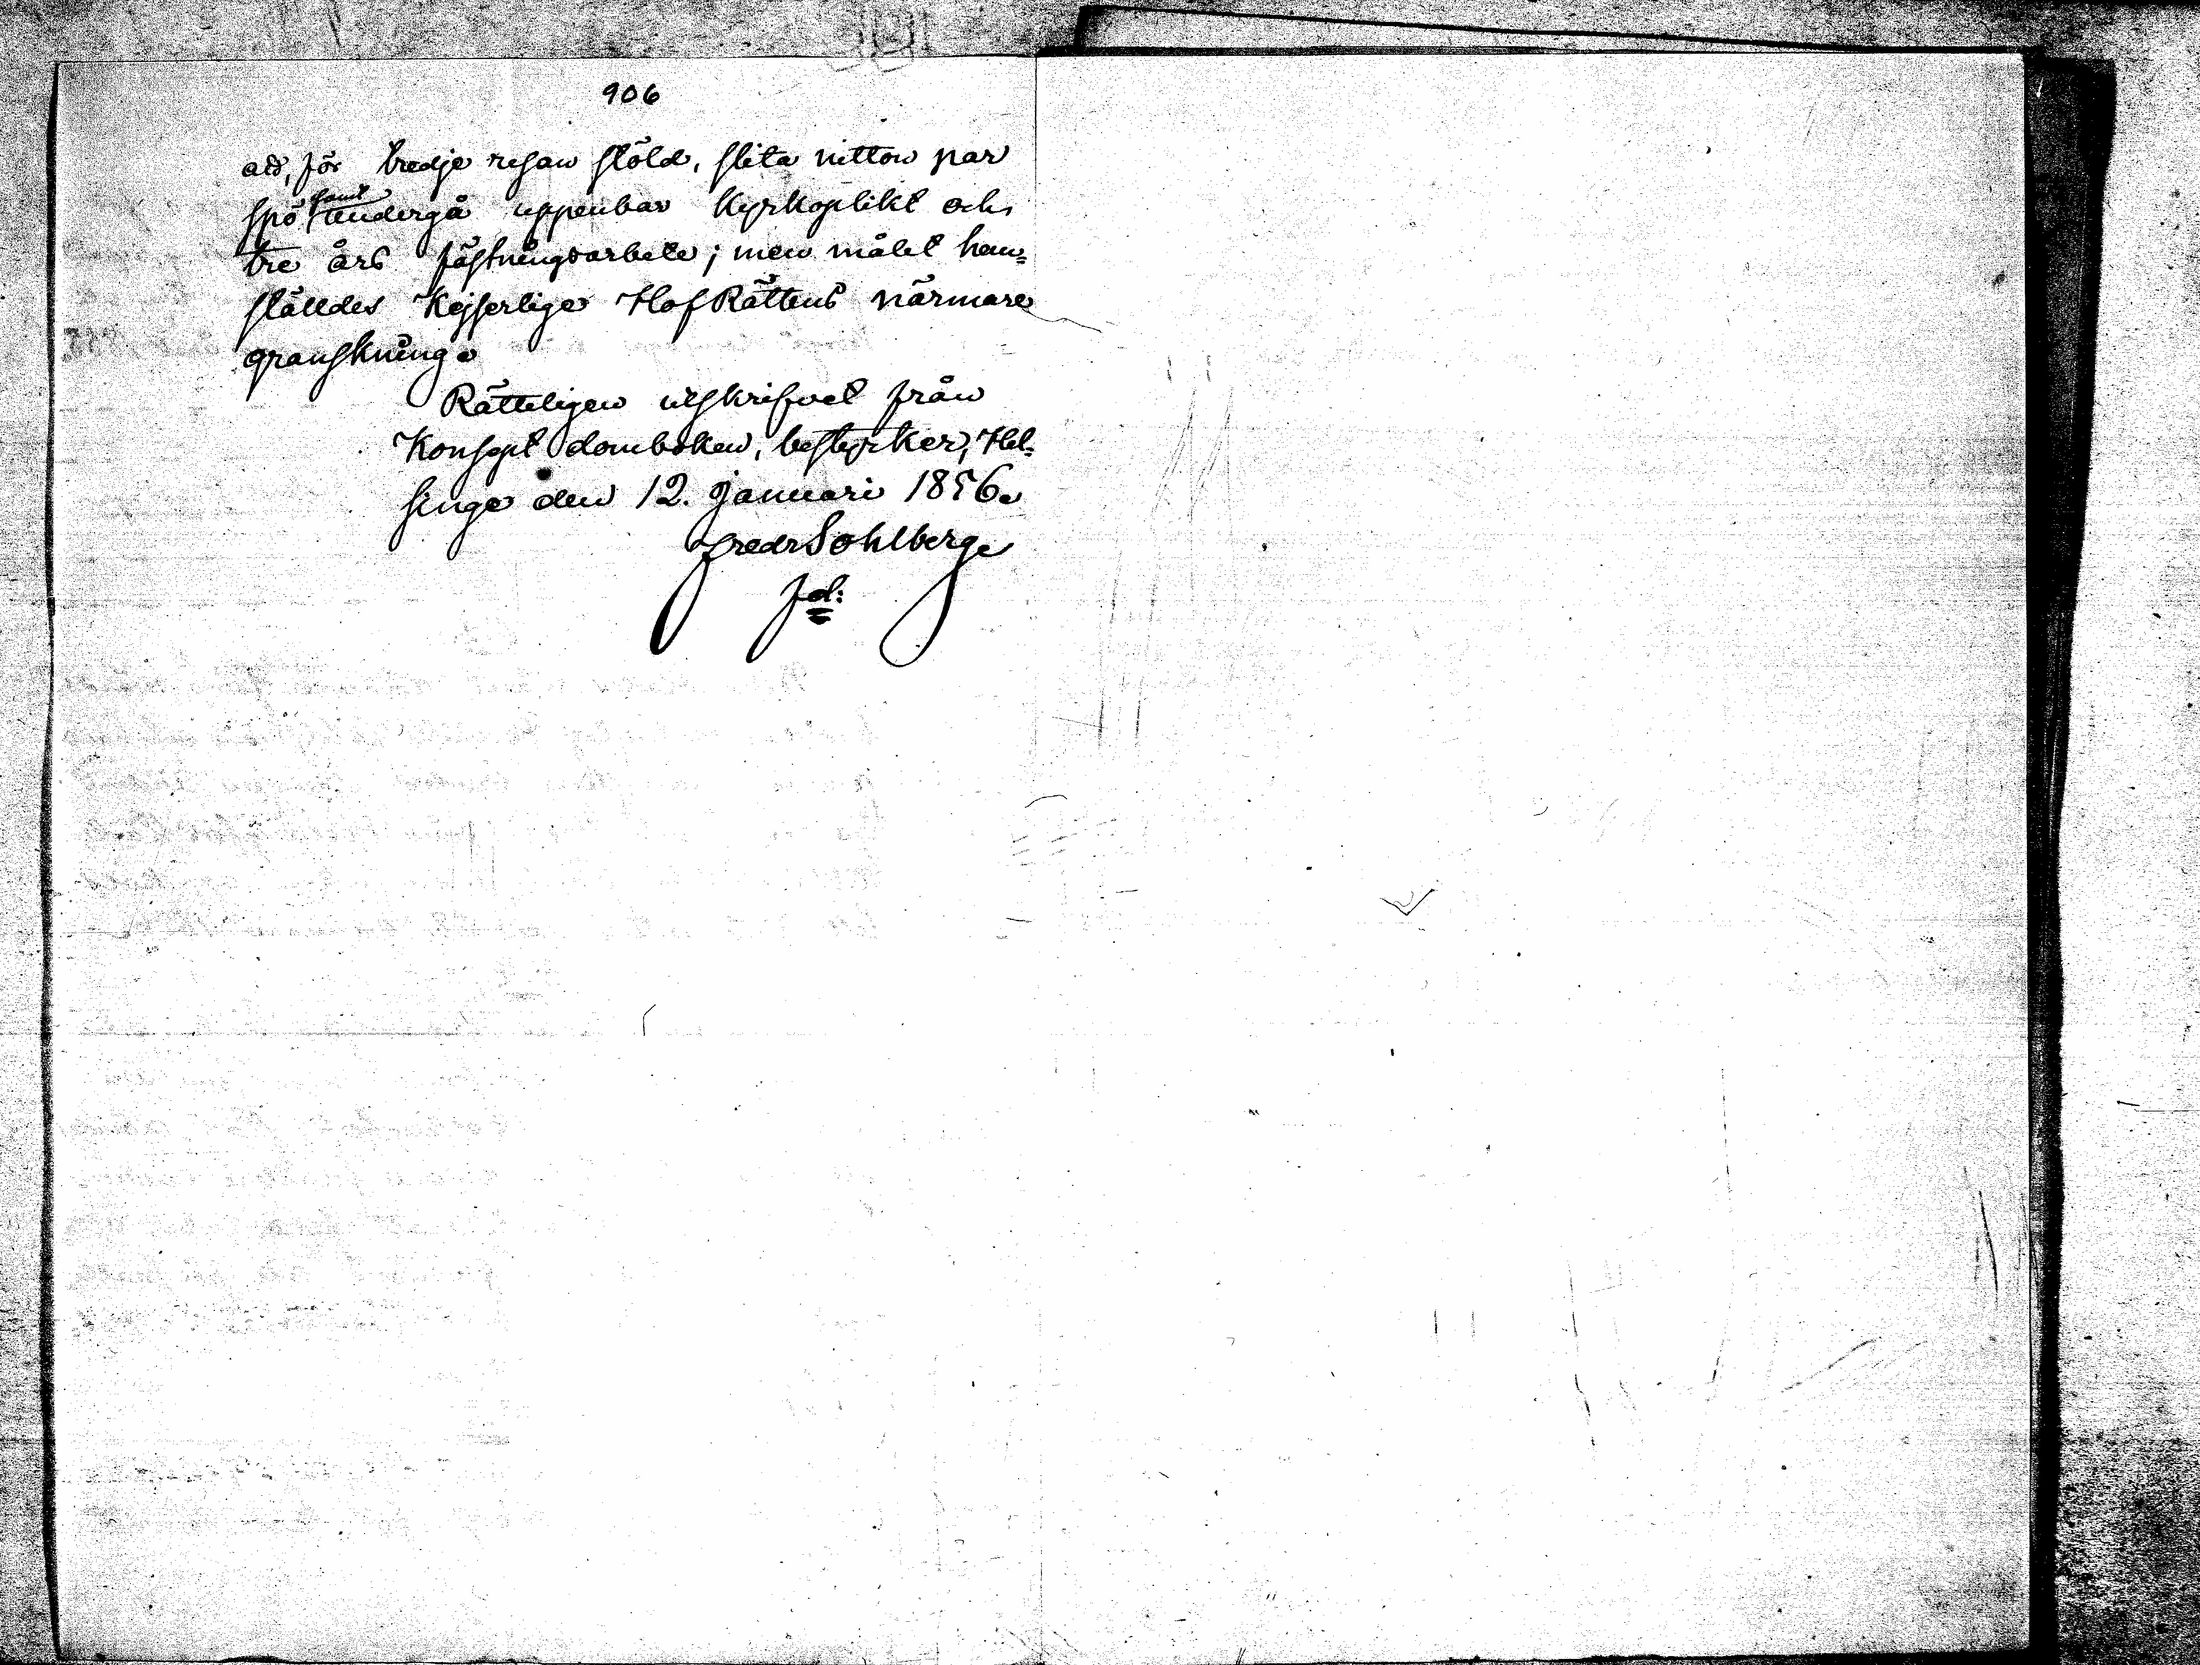 906
att, för tredje resan stöld, slita nitton par
spö samt undergå uppenbar Kyrkoplikt och
tre års fästningsarbete; men målet hem-
ställdes Kejserliga HofRättens närmare
granskning.
Rätteligen utskrifvet från
Konsept domboken, bestyrker; Hel-
singe den 12. Januari 1856.
Fredr Sohlberg